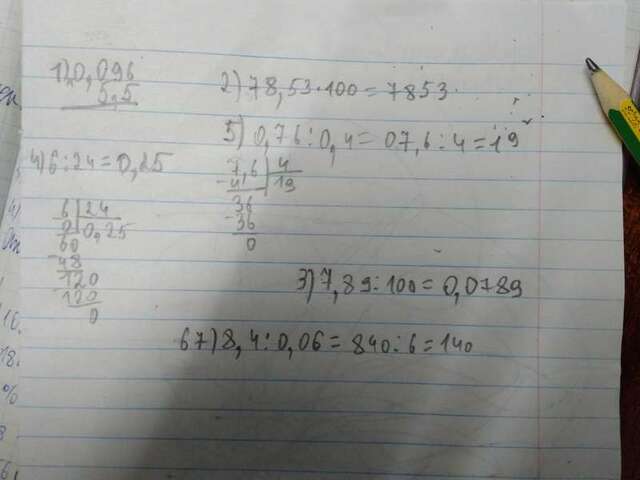 1) 0,096
5,5
2) 78,53·100=7853
5) 0,76:0,4=07,6:4=19
7,6 4
-4 19
36
-36
0
4) 6:24=0,25
6 24
0 0,25
60
-48
120
-120
0
3) 7,89:100=0,0789
67) 8,4:0,06=840:6=140